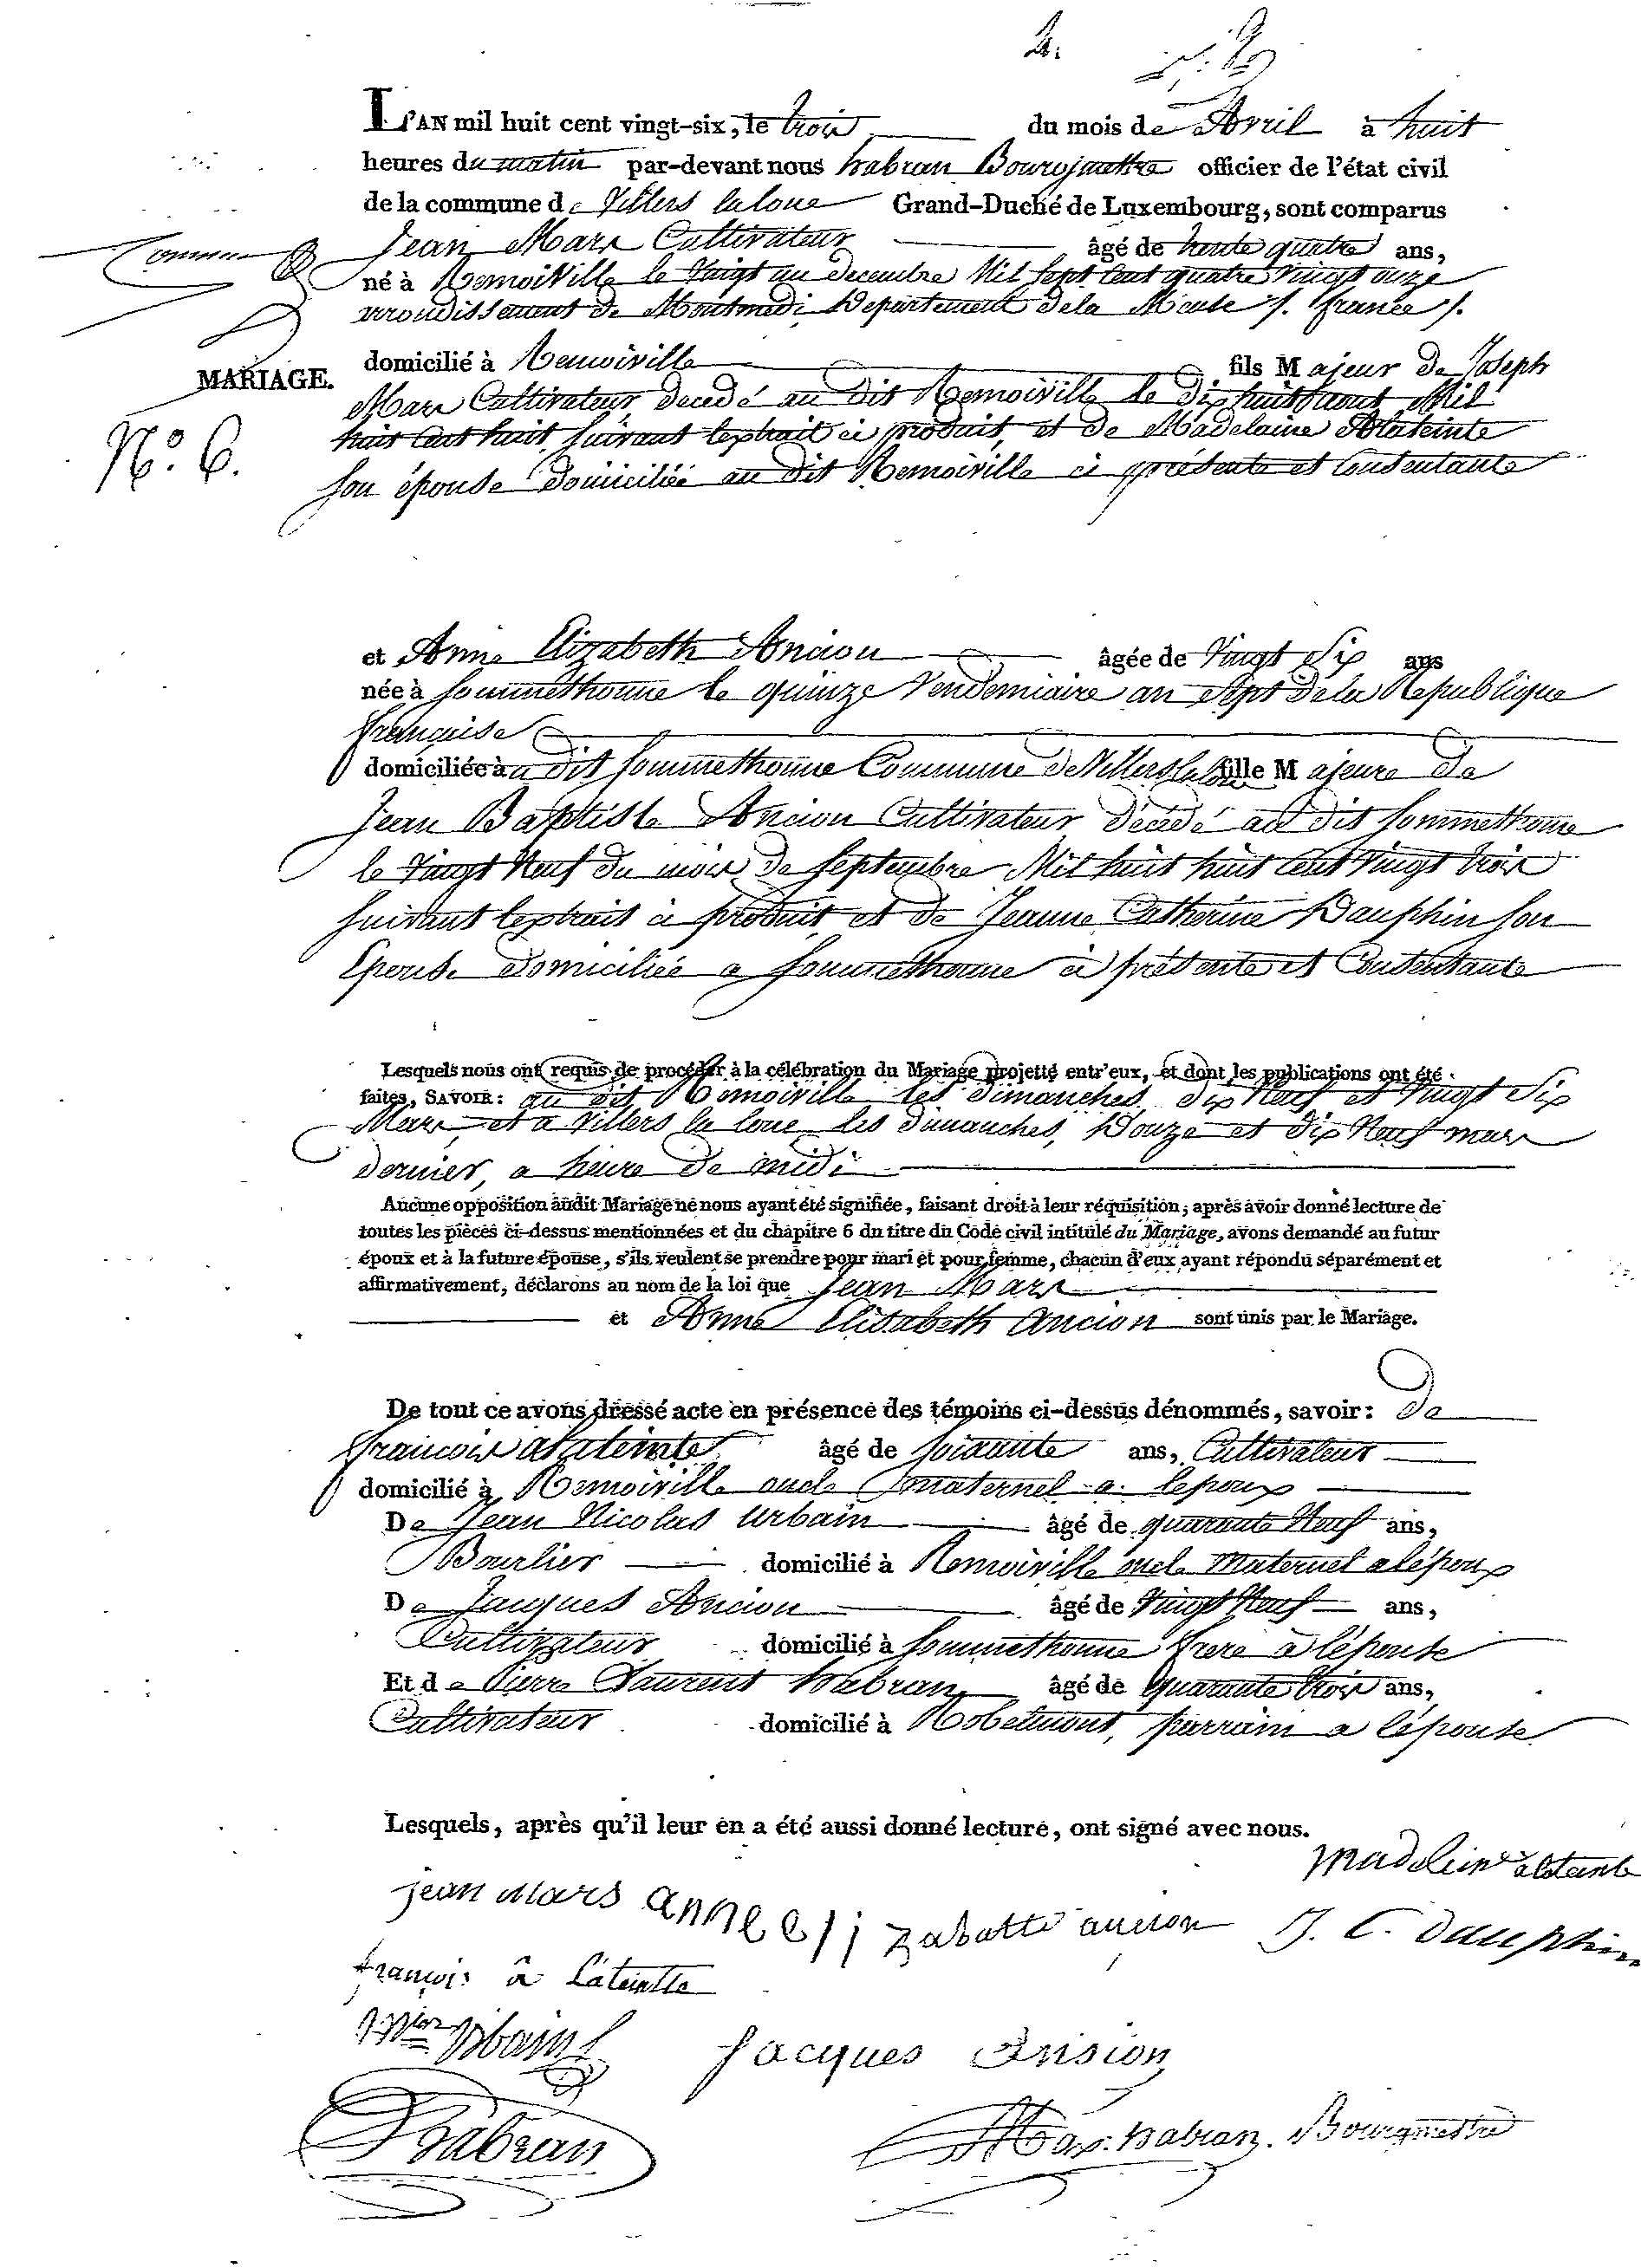 2.
L'AN mil huit cent vingt-six, le trois du mois de Avril à huit
heures du matin par-devant nous habran Bourgmettre officier de l'état civil
de la commune de Villers la loue Grand-Duché de Luxembourg, sont comparus
Jean Mars Cultivateur âgé de trente quatre ans,
né à Remoiville le Vingt un decembre Mil Sept Cent quatre Vingt onze
arrondissement de Montmedi Departement de la Meuse /. france /.
domicilié à Remoiville fils Majeur de Joseph
MARIAGE.
Mars Cultivateur decedé au dit Remoiville le dix huit aout Mil
huit Cent huit, suivant lextrait ci produit, et de Madelaine Alateinte
N.º 6.
son épouse domiciliée au dit Remoiville ci présente et Consentante
et Anne Elizabeth Ancion âgée de Vingt Six ans
née à sommethonne le quinze Vendemiaire an Sept de la Republique
française
domiciliée au dit sommethonne Commune de Villers la loue fille Majeure de
Jean Baptiste Ancion Cultivateur décédé au dit sommethonne
le Vingt Neuf du mois de septembre Mil huit huit Cent Vingt trois
suivant lextrait ci produit, et de Jeanne Catherine Dauphin son
Epouse domiciliée a sommethonne ci présente et Consentante
Lesquels nous ont requis de procéder à la célébration du Mariage projetté entr'eux, et dont les publications ont été
faites, SAVOIR: au dit Remoiville les dimanches dix Neuf et Vingt Six
Mars, et a Villers la loue les dimanches, Douze et dix Neuf mars
dernier, a heure de midi
Aucune opposition audit Mariage ne nous ayant été signifiée, faisant droit à leur réquisition; après avoir donné lecture de
toutes les pièces ci-dessus mentionnées et du chapitre 6 du titre du Code civil intitulé du Mariage, avons demandé au futur
époux et à la future épouse, s'ils veulent se prendre pour mari et pour femme, chacun d'eux ayant répondu séparément et
affirmativement, déclarons au nom de la loi que Jean Mars
et Anne Elisabeth Ancion sont unis par le Mariage.
De tout ce avons dressé acte en présence des témoins ci-dessus dénommés, savoir: De
francois alateinte âgé de soixante ans, Cultivateur
domicilié à Remoiville oncle maternel a lepoux
De Jean Nicolas Urbain âgé de quarante Neuf ans,
Bourlier domicilié à Remoiville oncle Maternel a lépoux
De Jacques Ancion âgé de Vingt Neuf ans,
Cultivateur domicilié à sommethonne frere à l'épouse
Et de Pierre Laurent habran âgé de Quarante trois ans,
Cultivateur domicilié à Robelmont, parrain a l'épouse
Lesquels, après qu'il leur en a été aussi donné lecture, ont signé avec nous.
madeleine alatante
jean mars anne elizabatte ancion J. C. dauphin
françois à Lateintte
Urbain
Jacques Ansion
habran
Max. habran. Bourgmestre